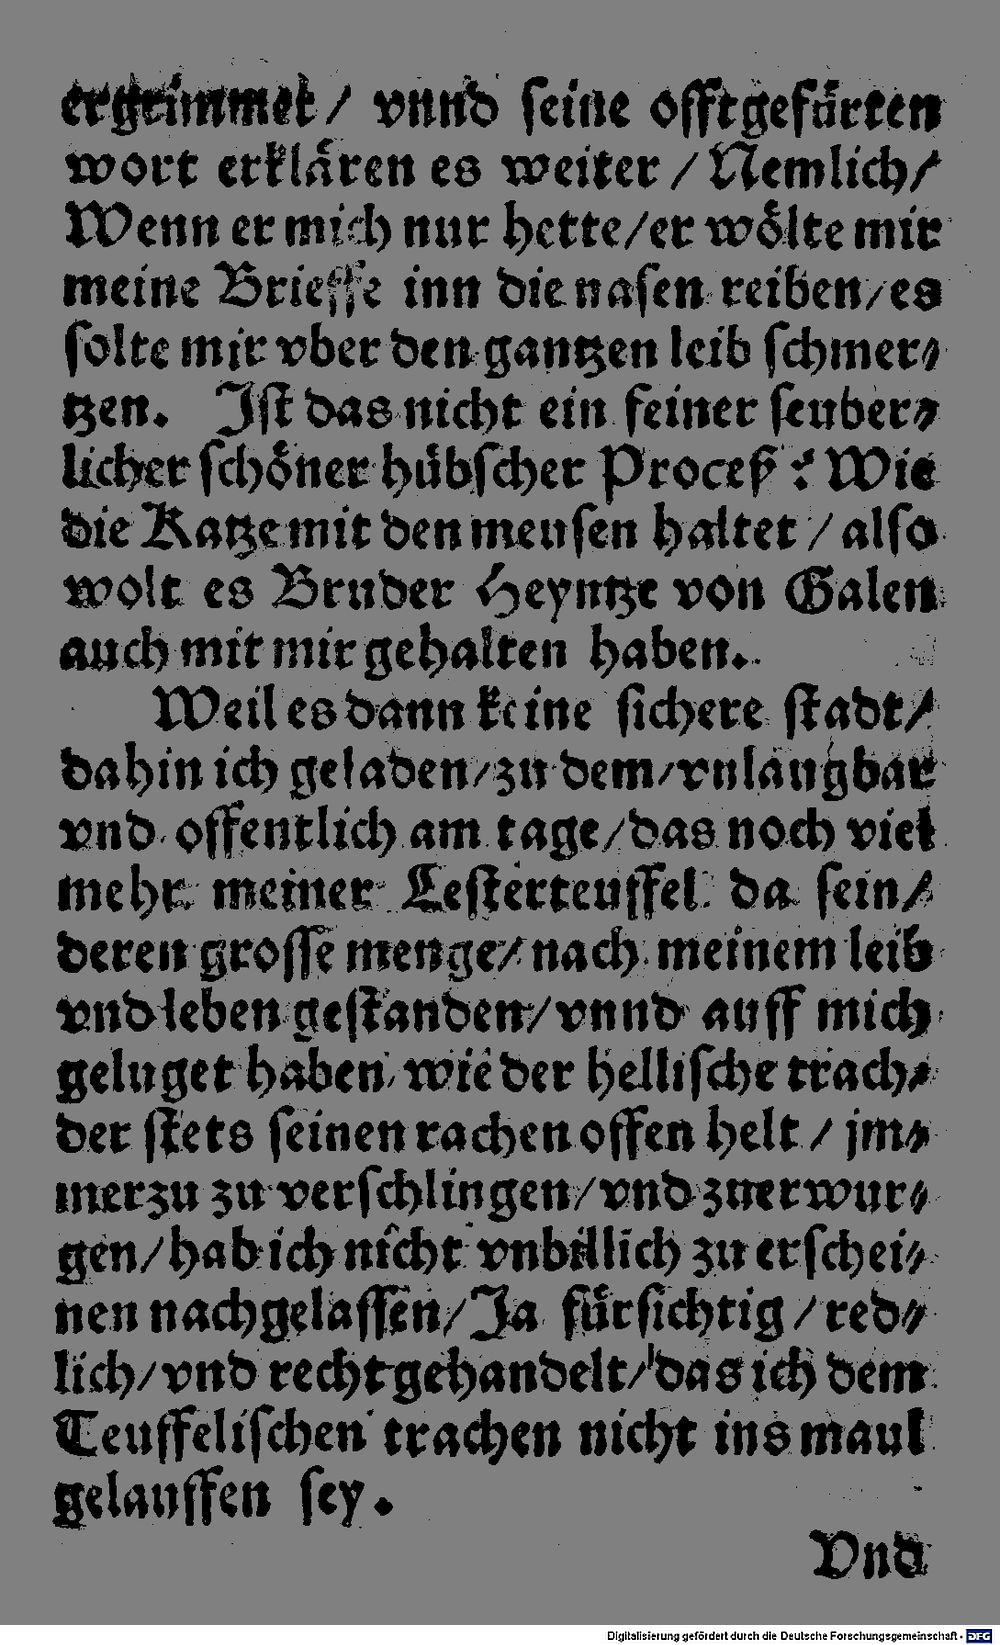 ergrimmet / vnnd ſeine offtgefårten
wort erklåren es weiter / Nemlich /
Wenn er mich nur hette / er wȯlte mir
meine Brieffe inn die naſen reiben / es
ſolte mir vber den gantzen leib ſchmer⸗
tzen. Jſt das nicht ein feiner ſeuber⸗
licher ſchöner hübſcher Proceß? Wie
die Katze mit den meuſen haltet / alſo
wolt es Bruder Heyntze von Galen
auch mit mir gehalten haben.
Weil es dann keine ſichere ſtadt /
dahin ich geladen / zu dem / vnlaugbar
vnd offentlich am tage / das noch viel
mehr meiner Leſterteuffel da ſein /
deren groſſe menge / nach meinem leib
vnd leben geſtanden / vnnd auff mich
geluget haben wie der helliſche trach /
der ſtets ſeinen rachen offen helt / jm⸗
merzu zu verſchlingen / vnd zuerwur⸗
gen / hab ich nicht vnbillich zu erſchei⸗
nen nachgelaſſen / Ja fürſichtig / red⸗
lich / vnd recht gehandelt / das ich dem
Teuffeliſchen trachen nicht ins maul
gelauffen ſey.
Vnd
Digitalisierung gefördert durch die Deutsche Forschungsgemeinschaft - DFG